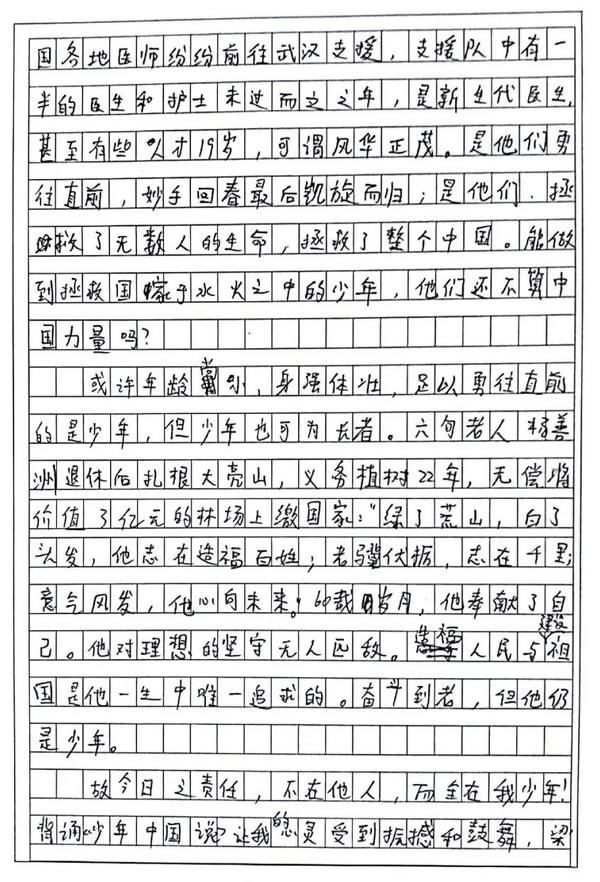 国各地医师纷纷前往武汉支援，支援队中有一
半的医生和护士未过而立之年，是新生代医生，
甚至有些人才19岁，可谓风华正茂。是他们勇
往直前，妙手回春最后凯旋而归；是他们，拯
救了无数人的生命，拯救了整个中国。能做
到拯救国家于水火之中的少年，他们还不算中
国力量吗？
或许年龄尚小，身强体壮，足以勇往直前
的是少年，但少年也可为长者。六旬老人杨善
洲退休后扎根大亮山，义务植树22年，无偿将
价值3亿元的林场上缴国家：“绿了荒山，白了
头发，他志在造福百姓；老骥伏枥，志在千里；
意气风发，他心向未来。”60载岁月，他奉献了自
己。他对理想的坚守无人匹敌。造福人民与建设祖
国是他一生中唯一追求的。奋斗到老，但他仍
是少年。
故今日之责任，不在他人，而全在我少年！
将诵《少年中国说》让我的灵受到振撼和鼓舞，梁